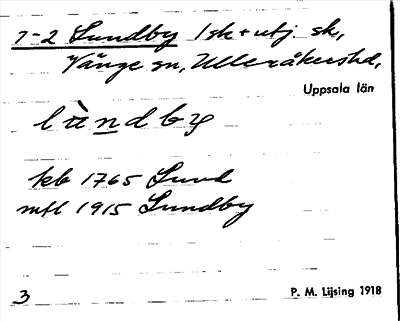 1-2 Lundby 1 sk + utj. sk,
Vänge sn, Ulleråkers hd,
Uppsala län
lùndby
kb 1765 Lund
mtl 1915 Lundby
3 P. M. Lijsing 1918